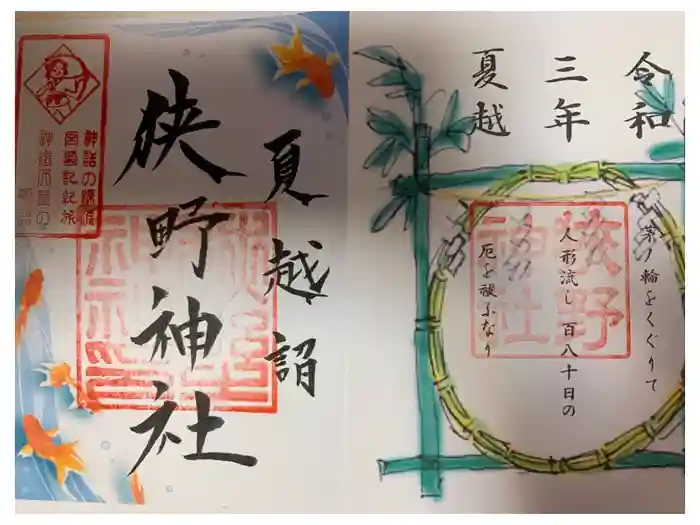 夏越詣
狭野神社
神話の源流
宮崎記紀旅
令和
三年
夏越
茅ノ輪をくぐりて
人形流し 百八十日の
厄を祓ふなり
狭野
神社